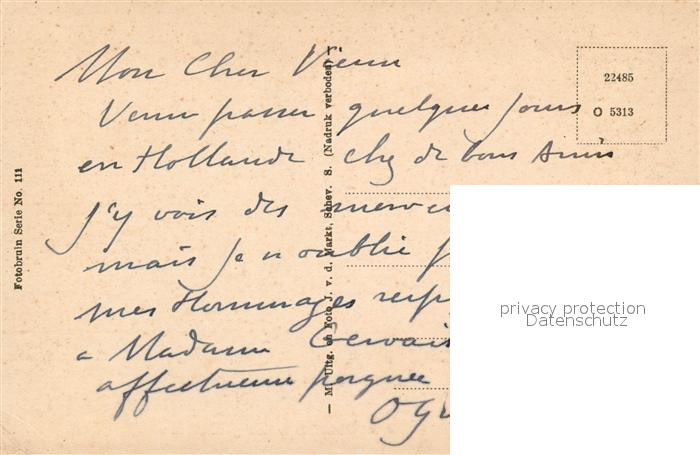 Mon Cher Vieux
Venu passer quelques jours
en Hollande chez de bons Amis
j'y vois des
mais je n'oublie
mes Hommages
a Madame Gervais
affectueuse
22485
O 5313
Fotobruin Serie No. 111
— M. Uitg. en Foto J. v. d. Markt, Schev. S. (Nadruk verboden)
privacy protection
Datenschutz